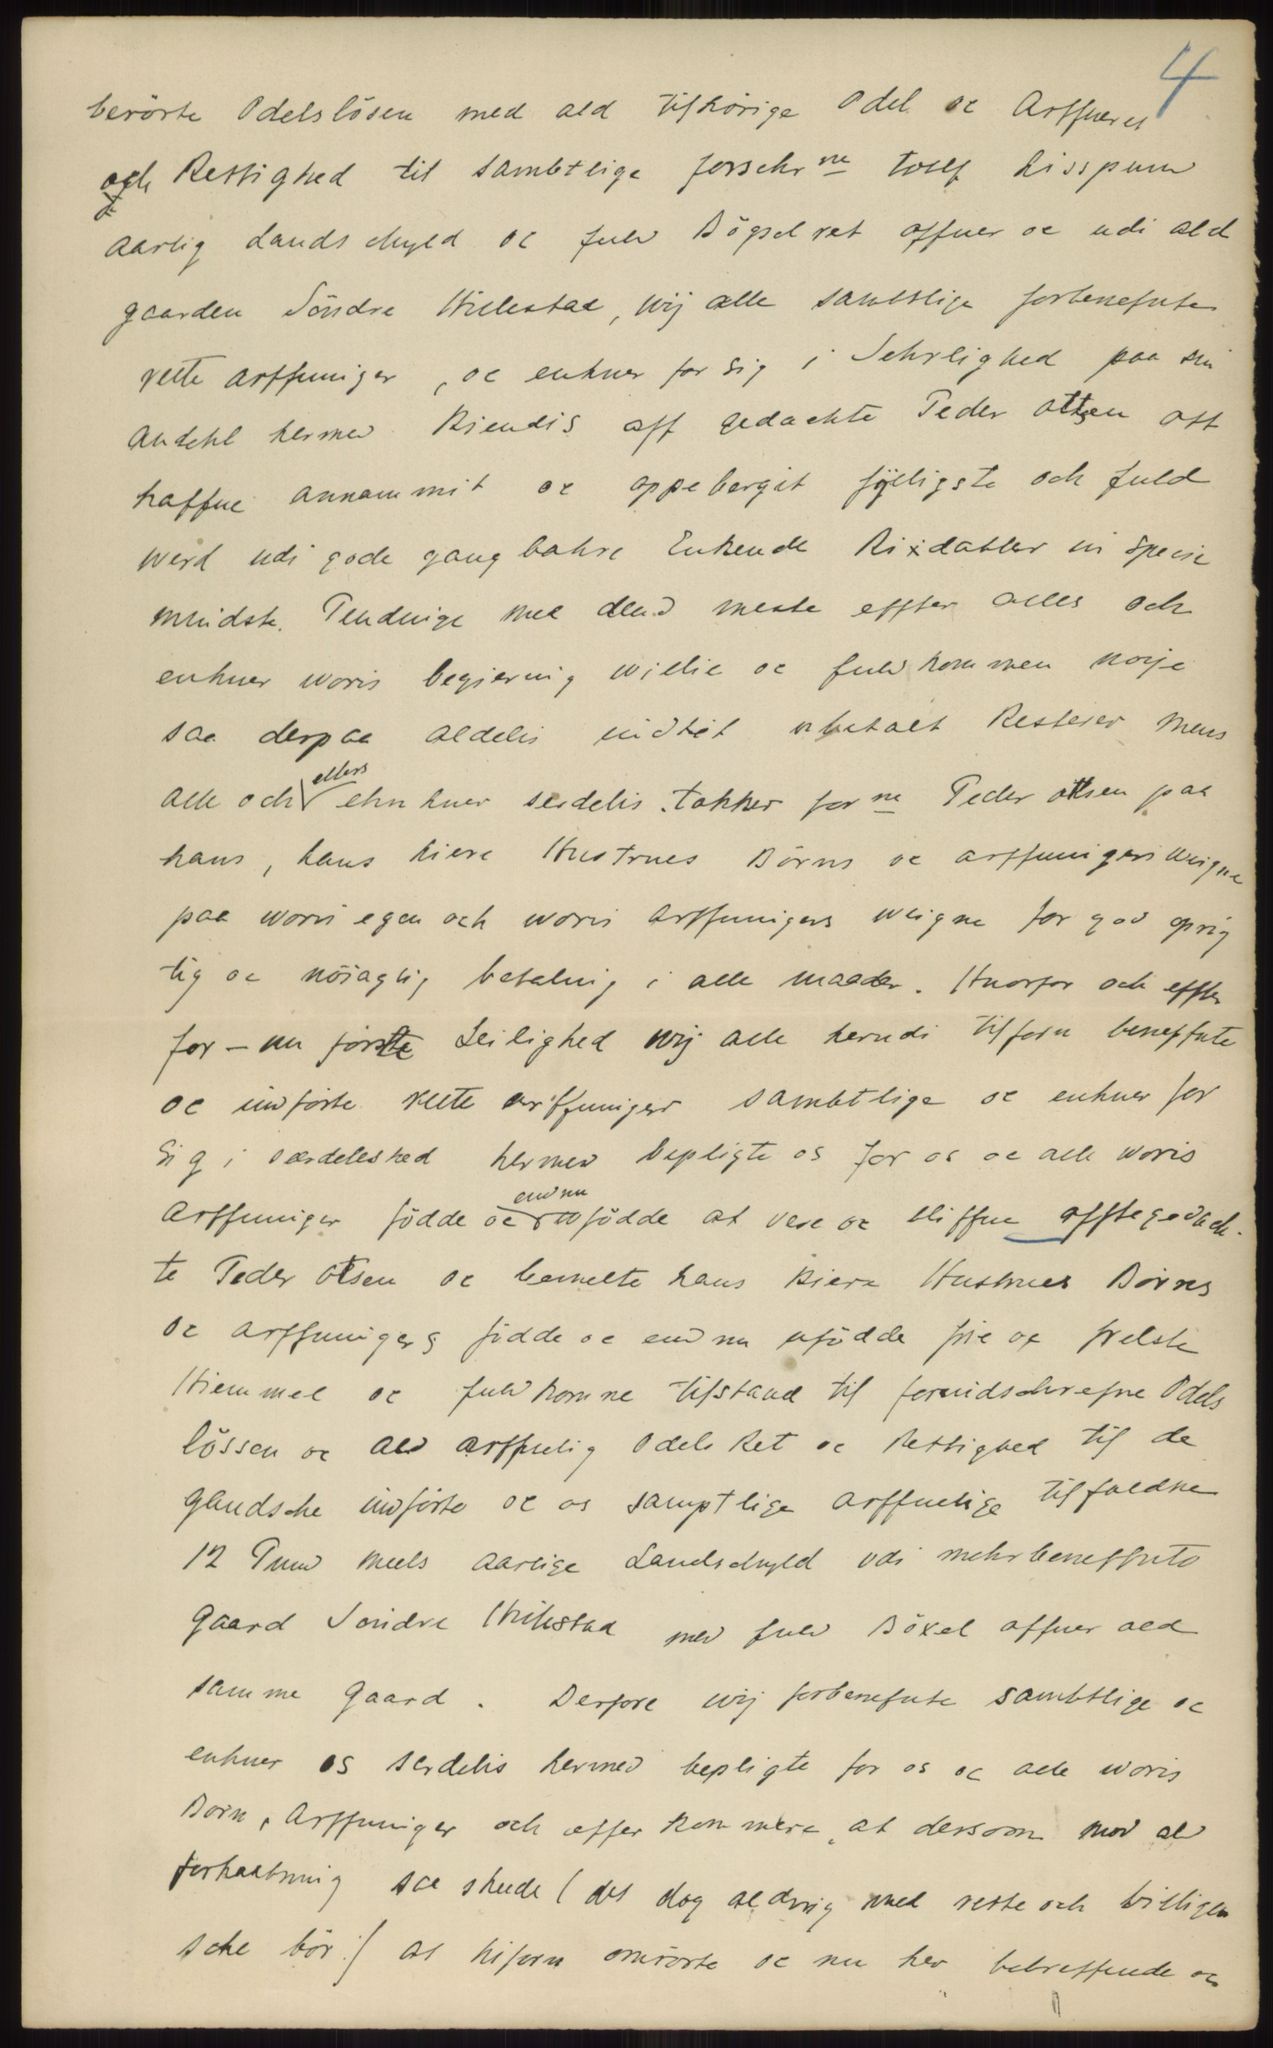 4
berörte Odelslösen med ald tilhörige Odel oc Arffueret
och Rettighed til sambtlige forschr ne tolf Lisspund
aarlig Landschyld oc fuld Bögsel ret offuer oc udi ald
gaarden Söndre Hillestad, wij alle sambtlige forbenefnte
rette arffuinger, oc enhuer for sig i Sehrlighed paa sin
Andehl hermed Kiendis aff gedachte Peder Ottsen att
haffue annammit oc oppebergit föyeligste och fuld
werd udi gode gangbahre Enkende Rixdahler in specie
mindste Pendinge med dend meste effter alles och
enhuer woris begiering willie oc fuldkommen nöije
saa derpaa aldelis indtet ubetalt Resterer mens
alle och ellers ehnhuer serdelis takker for ne Peder Ottsen paa
hans, hans kiere Hustrues Börns oc arffuingers weigne
paa woris egen och woris Arffuingers weigne for god oprig
tig oc nöiaglig betaling i alle maader. Huorfor och effter
for-nu förste Leilighed wij alle herudi tilforn beneffnte
oc indförte rette arffuinger sambtlige oc enhuer for
Sig i særdeleshed hermed bepligte os for os oc alle woris
Arffuinger födde oc endnu ufödde at vere oc bliffue offtegedach-
te Peder Otsen oc bemelte hans kiere Hustrues Börnes
oc arffuingers födde oc endnu ufödde frie oc frelste
Hiemmel oc fuldkomne tilstand til forindschrefne Odels
lössen oc ald arffuelig Odels Ret oc Rettighed til de
gandsche indförte oc os samptlige arffuelige tilfaldne
12 Pund meels aarlige Landschyld udi mehrbeneffnte
gaard Söndre Hillestad med fuld Böxel offuer ald
samme Gaard. Derfore wij forbenefnte sambtlige oc
enhuer os serdelis hermed bepligte for os oc alle woris
Börn, Arffuinger och effterkommere, at dersom mod ald
forhaabning saa skeede (det dog aldrig med rette och billigen
sche bör:) at hiforn omrörte oc nu her betreffende oc